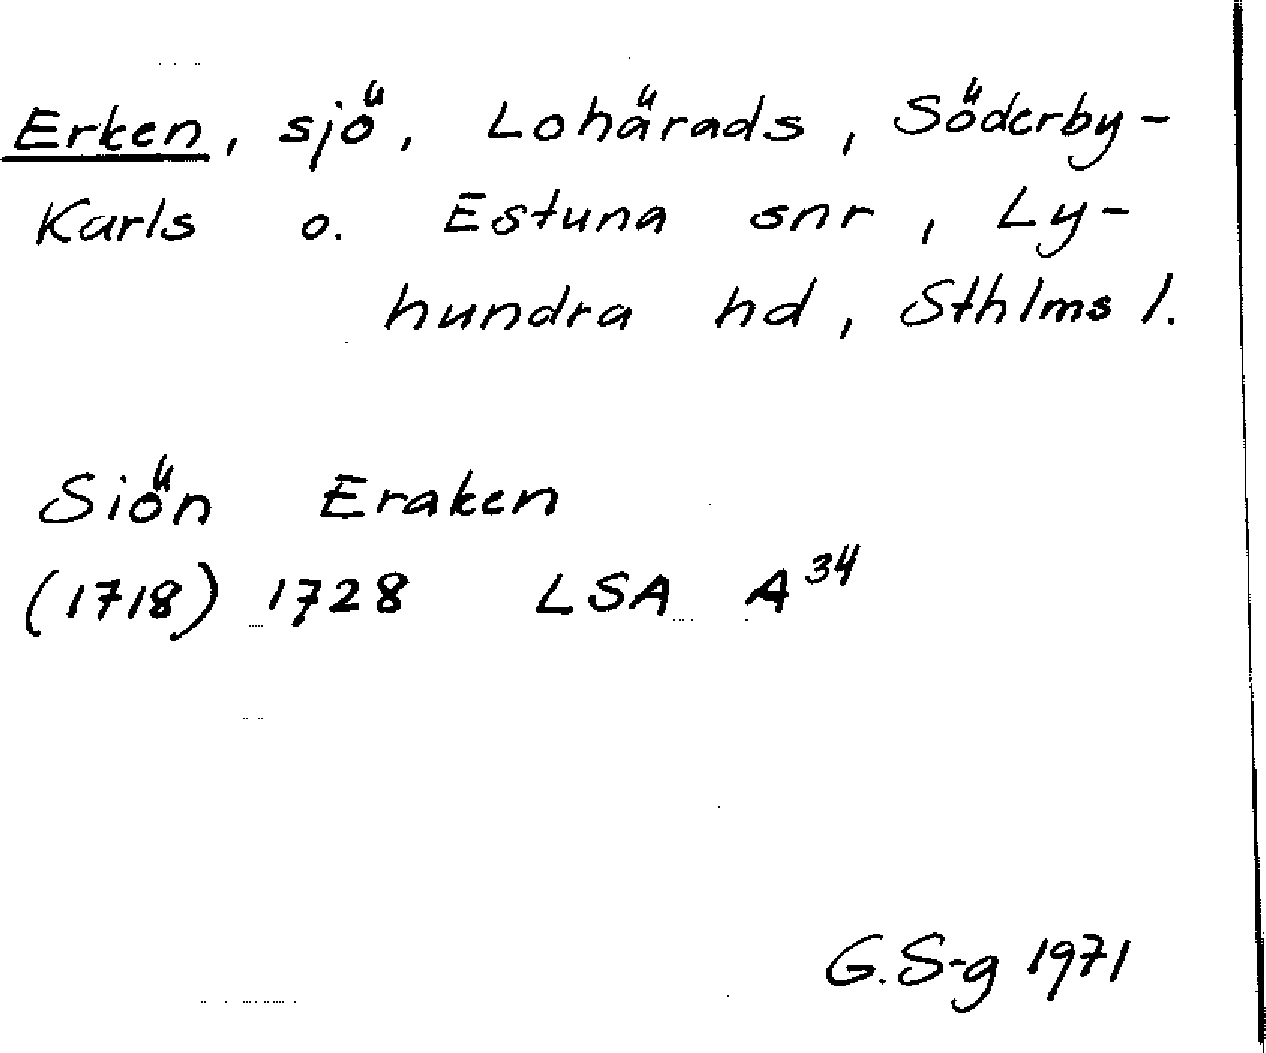 Erken, sjö, Lohärads, Söderby-
Karls o. Estuna snr, Ly-
hundra hd, Sthlms l.
Siön Eraken
(1718) 1728 LSA A³⁴
G.S-g 1971